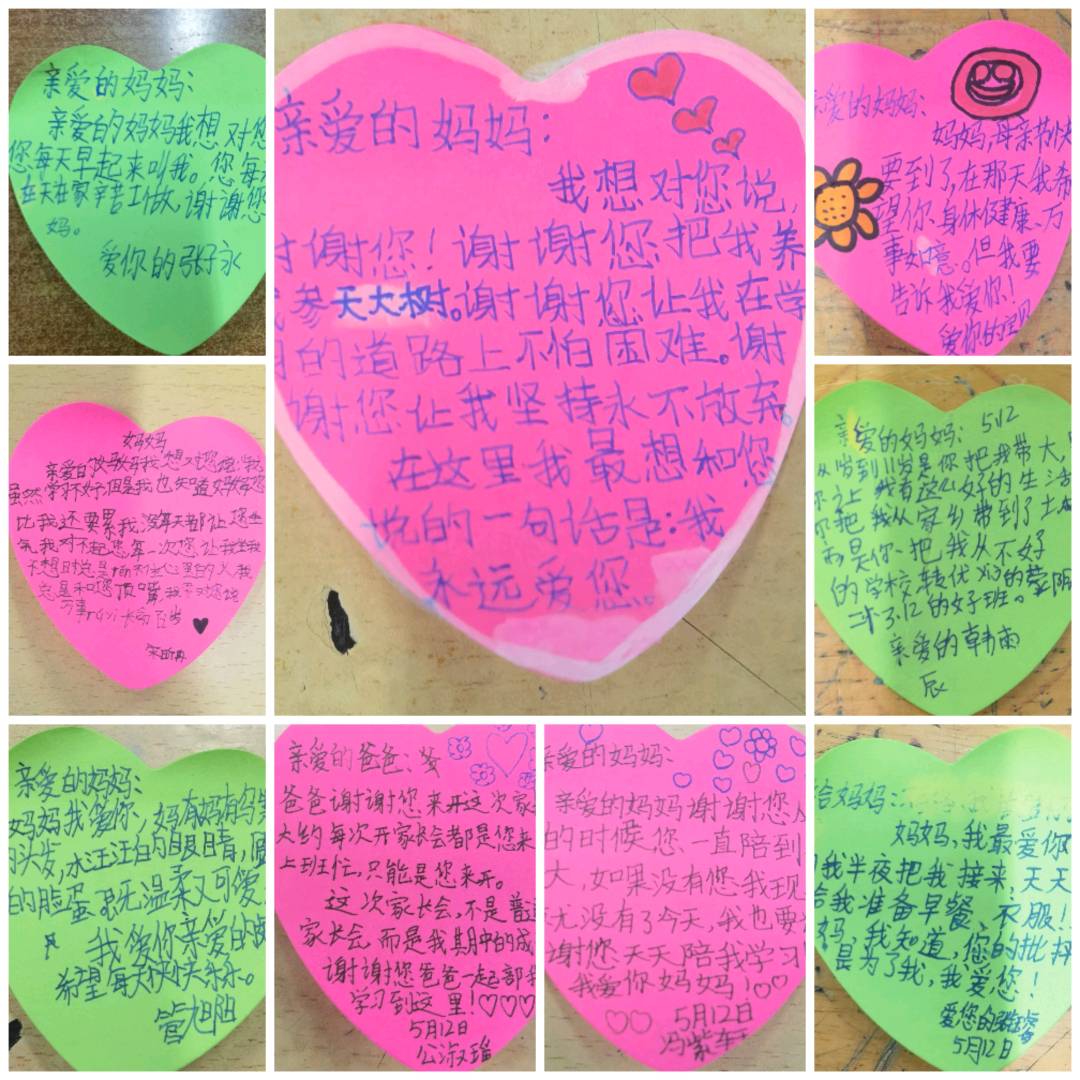 亲爱的妈妈:
亲爱的妈妈我想对您
您每天早起来叫我。您每
在天在家辛苦工做,谢谢您
妈。
爱你的张好永
亲爱的妈妈:
我想对您说,
谢谢您!谢谢您把我养
参天大树。谢谢您让我在学
的道路上不怕困难。谢
谢您让我坚持永不放弃。
在这里我最想和您
说的一句话是:我
永远爱您。
亲爱的妈妈:
妈妈,母亲节快
要到了,在那天我希
望你、身体健康、万
事如意。但我要
告诉我爱你!
爱你的宝贝
妈妈
亲爱的妈妈我想对您说:我
虽然学习不好但是我也知道妈妈您
比我还要累我没每天都让您生
气我对不起您第一次您让我
总是和您顶嘴我
万事 长命百岁
亲爱的妈妈: 5.12
从 岁到11岁是你把我带大,
你让我有这么好的生活
你把我从家乡带到了
而是你、把我从不好
的学校转优 的蒙阴
3.12的好班。
亲爱的韩雨
辰
亲爱的妈妈:
妈妈我爱你,妈有妈有乌
头发,水汪汪的眼睛,圆
的脸蛋 既无温柔又可爱
我爱你亲爱的
希望每天快快乐乐。
管旭阳
亲爱的爸爸:爸
爸爸谢谢您来开这次家
大约每次开家长会都是您来
上班忙,只能是您来开。
这次家长会,不是普通
家长会,而是我期中的成
谢谢您爸爸一起部
学习到这里!♡♡♡
5月12日
公淑瑶
亲爱的妈妈:
亲爱的妈妈谢谢您
的时候您一直陪到
大,如果没有您我现
无没有了今天,我也要
谢您天天陪我学习
我爱你妈妈!
5月12日
冯紫轩
给妈妈:
妈妈,我最爱你
我半夜把我接来,天天
给我准备早餐、衣服!
妈,我知道,您的批评
是为了我,我爱您!
爱您的
5月12日